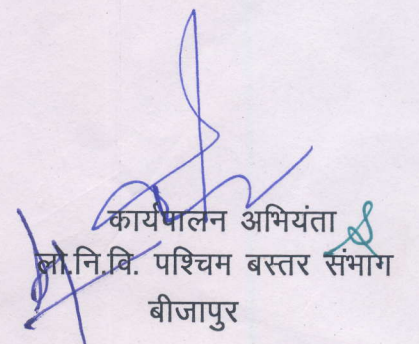 कार्यपालन अभियंता
लो.नि.वि. पश्चिम बस्तर संभाग
बीजापुर